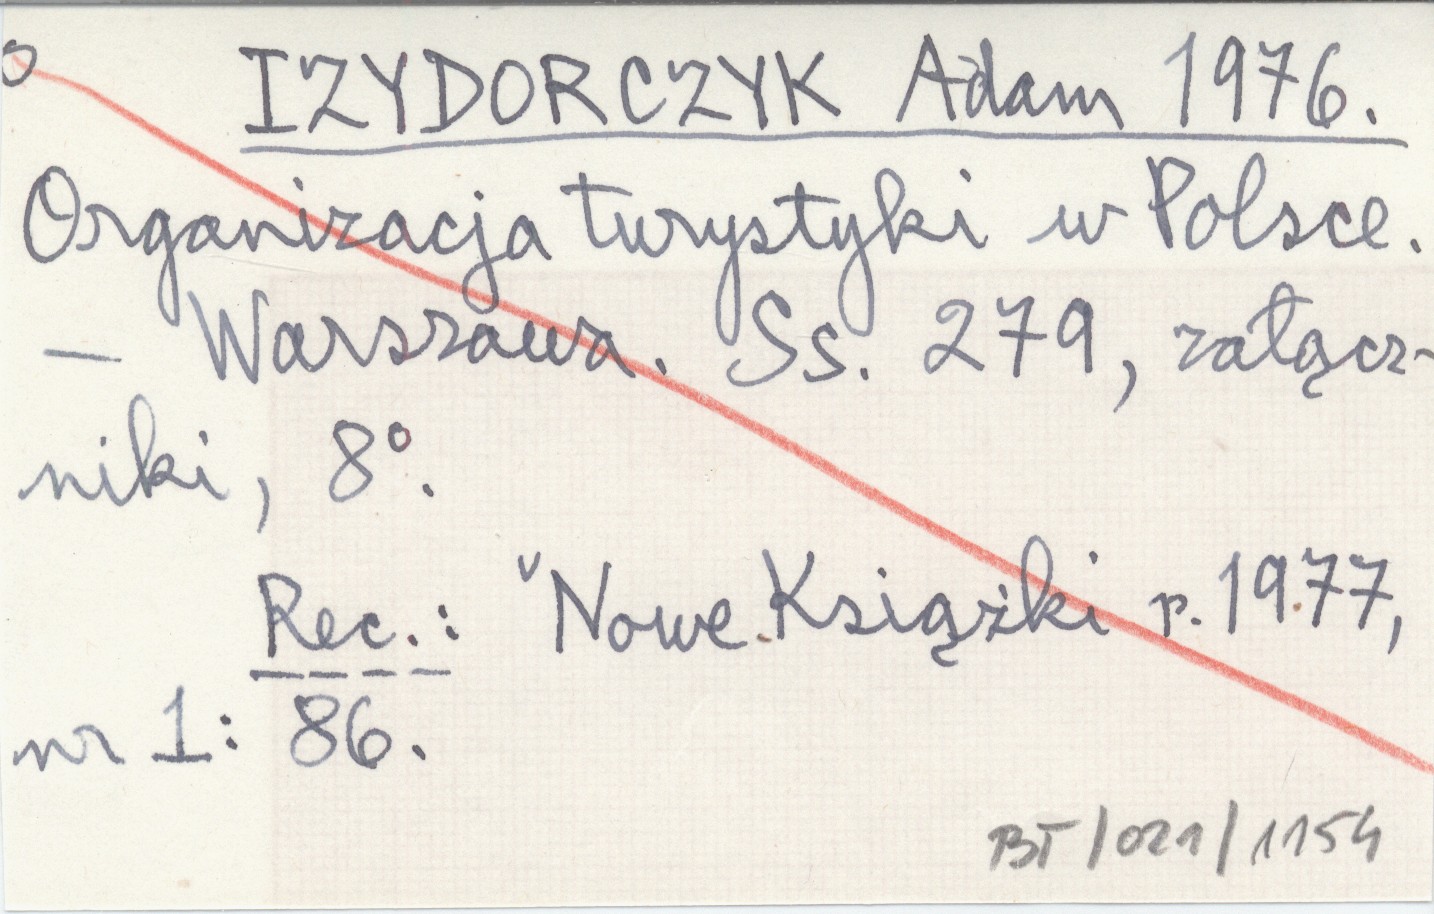 IZYDORCZYK Adam 1976.
Organizacja turystyki w Polsce.
— Warszawa. Ss. 279, załącz-
niki, 8°.
Rec.: "Nowe Książki r. 1977,
nr 1: 86.
BT/021/1154